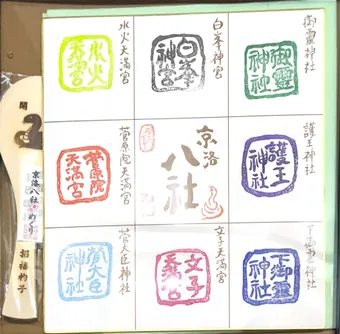 御霊神社
御霊神社
白峯神宮
白峯神宮
水火天満宮
水火天満宮
護王神社
護王神社
京洛
八社
菅原院天満宮
菅原院天満宮
下御霊神社
下御霊神社
文子天満宮
文子天満宮
菅大臣神社
菅大臣神社
開
京洛八社めぐり
招福杓子